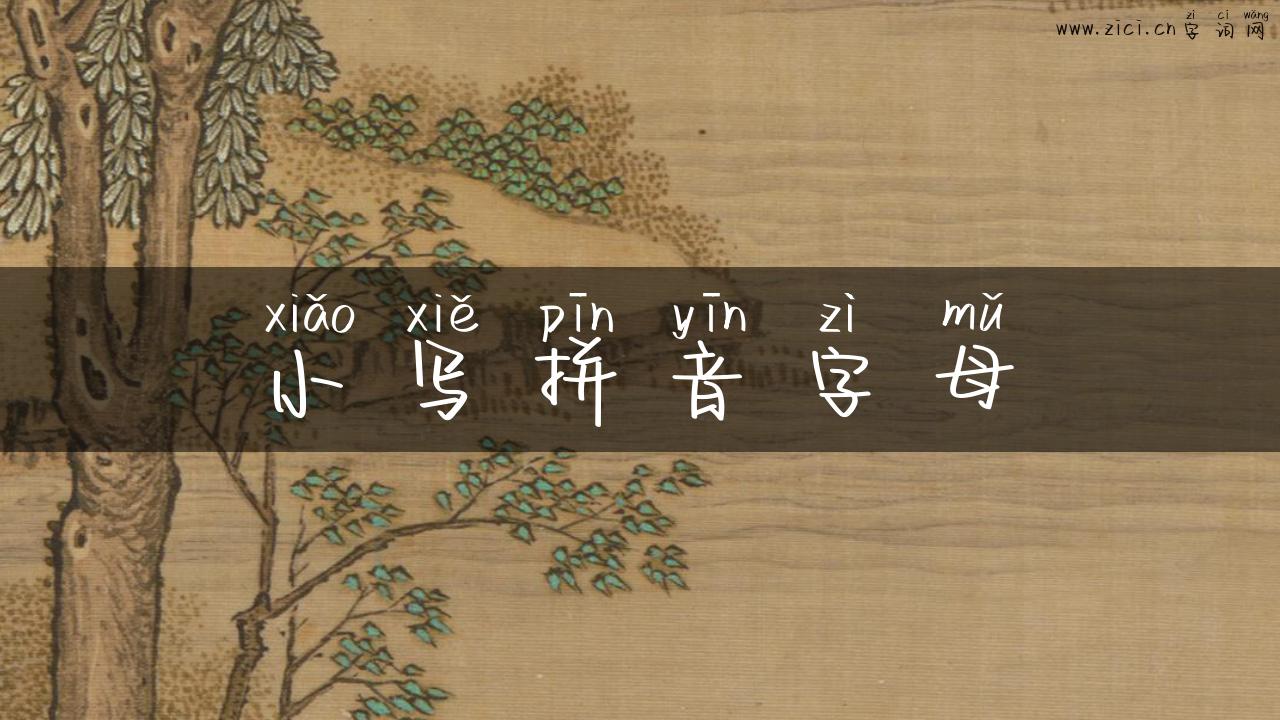 zì cí wǎng
www.zici.cn 字 词 网
xiǎo xiě pīn yīn zì mǔ
小 写 拼 音 字 母